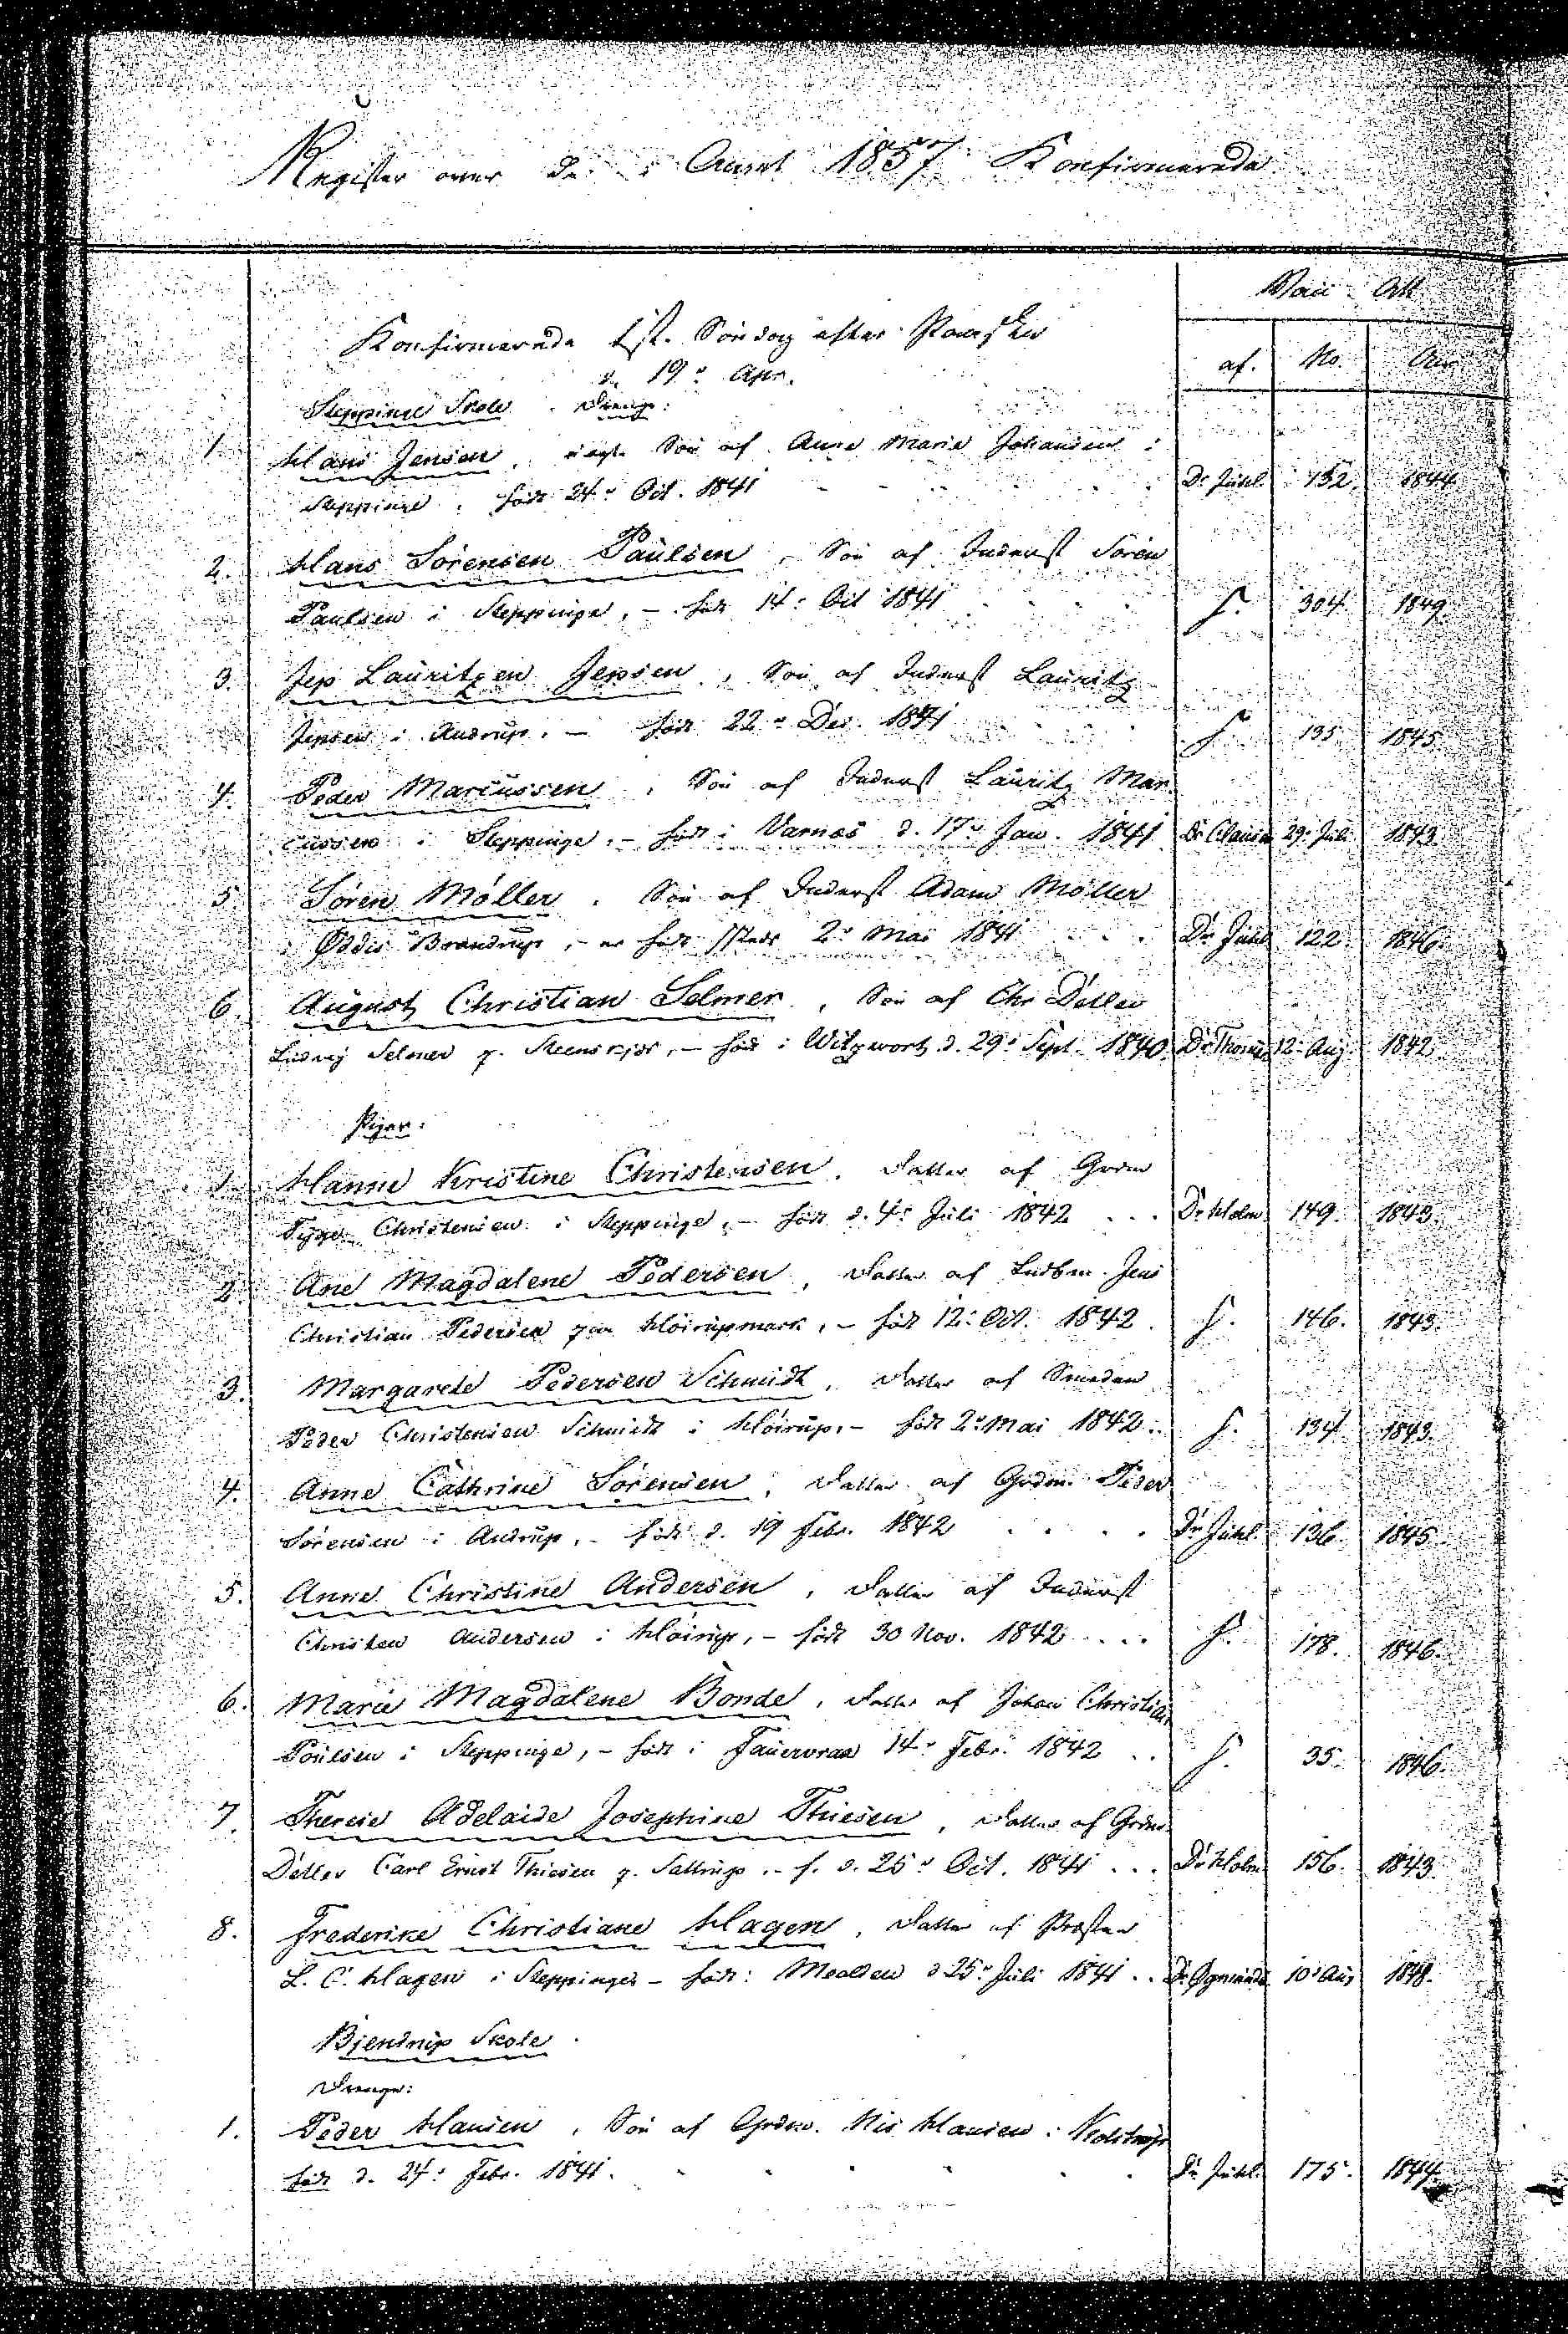 Register over de i Aaret 1857 Konfirmerede
Vacc. Att.
Konfirmerede 1ste Søndag efter Paaske
d. 19de Apr.
af. No. Aar
Steppinge Skole. Drenge:
1. Hans Jensen, uægte Søn af Anne Marie Johansen i
Steppinge, født 24de Oct. 1841 Dr. Juhl. 152. 1844
2. Hans Sörensen Paulsen, Søn af Inderst Sören
Paulsen i Steppinge, – født 14de Oct 1841 S. 304. 1849.
3. Jep Lauritzen Jepsen, Søn af Inderst Lauritz
Jepsen i Andrup, – født 22de Dec. 1841 S. 135 1845
4. Peder Marcussen, Søn af Inderst Lauritz Mar
cussen i Steppinge, – født i Varnæs d. 17de Jan. 1841 Dr. Clausen 29de Juli 1843
5. Sören Möller, Søn af Inderst Adam Möller
i Øddis Bramdrup, – er født ssteds 2de Mai 1841 Dr. Juhl 122. 1846.
6. August Christian Selmer, Søn af Chr. Detlev
Ludvig Selmer p. Steenskjær, – født i Witzwort d. 29de Sept. 1840. Dr. Thomsen 12te Aug. 1842
Piger:
1. Hanne Kristine Christensen, Datter af Grdm
Tyge Christensen i Steppinge, – født d. 4de Juli 1842 ... Dr. Holm 149. 1843.
2. Ane Magdalene Pedersen, Datter af Indbm. Jens
Christian Pedersen paa Höirupmark, – født 12te Oct. 1842. S. 146. 1843.
3. Margarete Pedersen Schmidt, Datter af Smeden
Peder Christensen Schmidt i Höirup, – født 2de Mai 1842. S. 134 1843.
4. Anne Cathrine Sörensen, Datter af Grdm. Peder
Sörensen i Andrup, – født d. 19 Febr. 1842 .... Dr. Juhl. 136. 1845.
5. Anne Christine Andersen, Datter af Inderst
Christen Andersen i Höirup, – født 30 Nov. 1842 .... S. 178. 1846.
6. Marie Magdalene Bonde, Datter af Johan Christian
Poulsen i Steppinge, – født i Fauervraa 14de Febr. 1842 .. S. 35. 1846.
7. Therese Adelaide Josephine Thiesen, Datter af Grdm.
Detlev Carl Ernst Thiesen p. Sattrup, – f. d. 25de Oct. 1841 ... Dr. Holm. 156. 1843.
8. Frederike Christiane Hagen, Datter af Præsten
L. C. Hagen i Steppinge, – født i Meolden d 25de Juli 1841 .. 10de Aug 1848.
Bjendrup Skole.
Drenge:
1. Peder Hansen, Søn af Grdm. Nis Hansen i
født d. 24de Febr. 1841. Dr. Juhl. 175. 1844